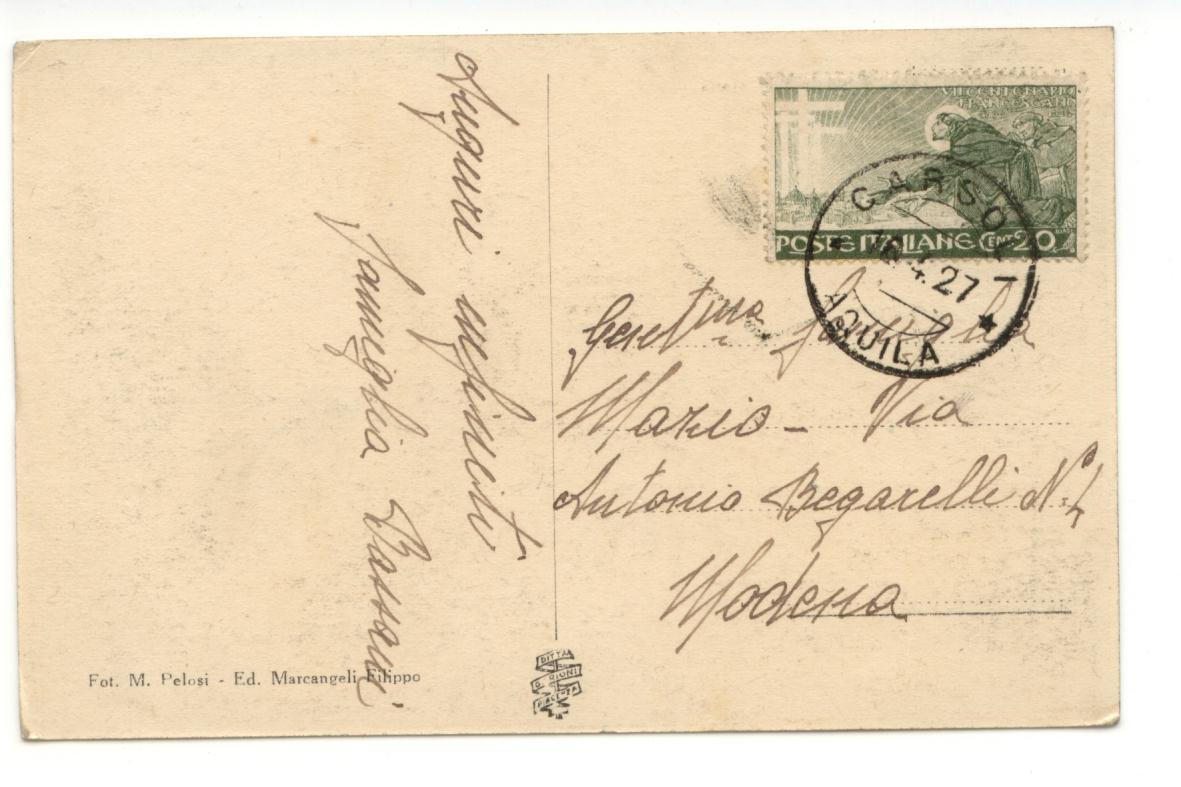 Auguri infiniti
Famiglia Bassani
VII CENTENARIO
FRANCESCANO
POSTE ITALIANE CENT 20
CARSOLI
16.4.27
AQUILA
Gent.ma famiglia
Mario - Via
Antonio Begarelli N.
Modena
Fot. M. Pelosi - Ed. Marcangeli Filippo
DITTA
PIACENZA